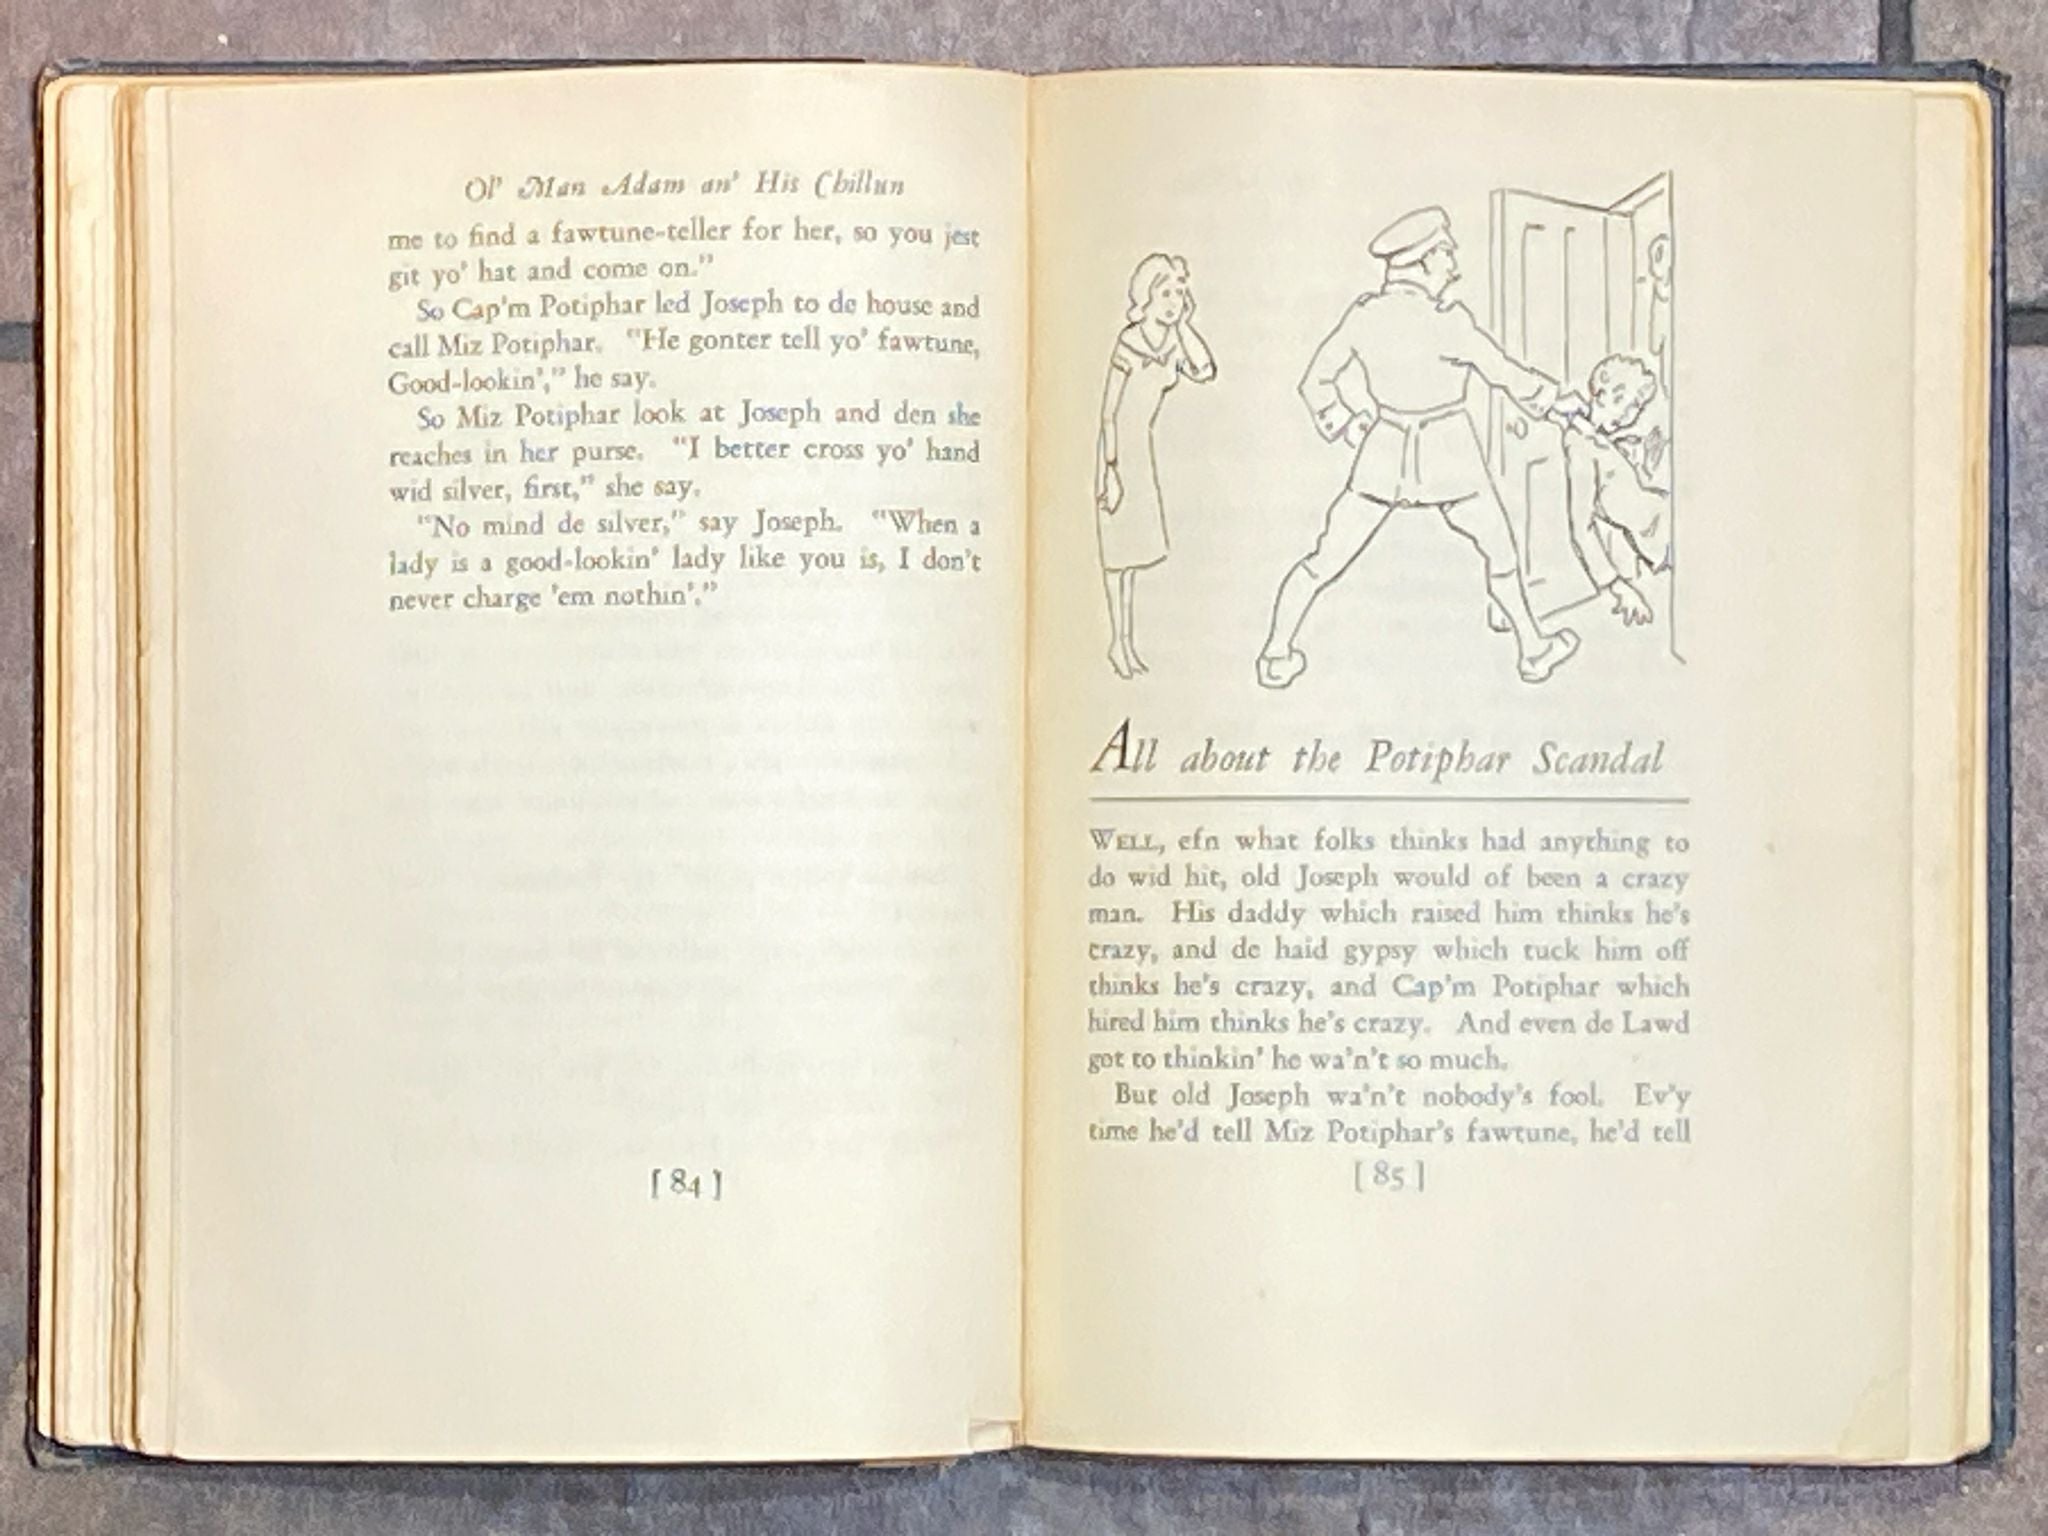 Ol' Man Adam an' His Chillun
me to find a fawtune-teller for her, so you jest
git yo' hat and come on."
So Cap'm Potiphar led Joseph to de house and
call Miz Potiphar. "He gonter tell yo' fawtune,
Good-lookin'," he say.
So Miz Potiphar look at Joseph and den she
reaches in her purse. "I better cross yo' hand
wid silver, first," she say.
"No mind de silver," say Joseph. "When a
lady is a good-lookin' lady like you is, I don't
never charge 'em nothin'."
[ 84 ]
All about the Potiphar Scandal
WELL, efn what folks thinks had anything to
do wid hit, old Joseph would of been a crazy
man. His daddy which raised him thinks he's
crazy, and de haid gypsy which tuck him off
thinks he's crazy, and Cap'm Potiphar which
hired him thinks he's crazy. And even de Lawd
got to thinkin' he wa'n't so much.
But old Joseph wa'n't nobody's fool. Ev'y
time he'd tell Miz Potiphar's fawtune, he'd tell
[ 85 ]